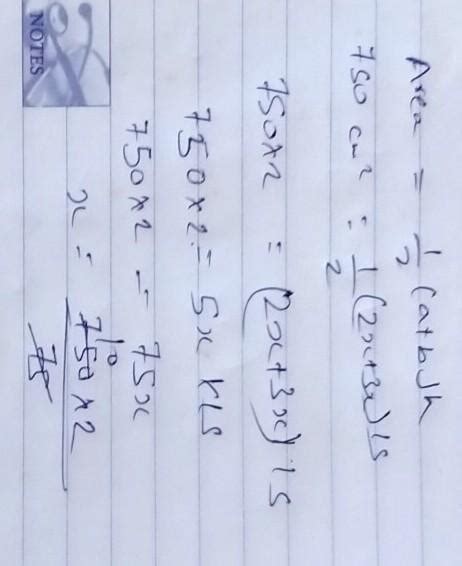 NOTES
Area = 1/2 (a+b)h
750 cm² = 1/2 (2x+3x)15
750x2 = (2x+3x)15
750x2 = 5x x15
750x2 = 75x
x = 750x2 / 75
10